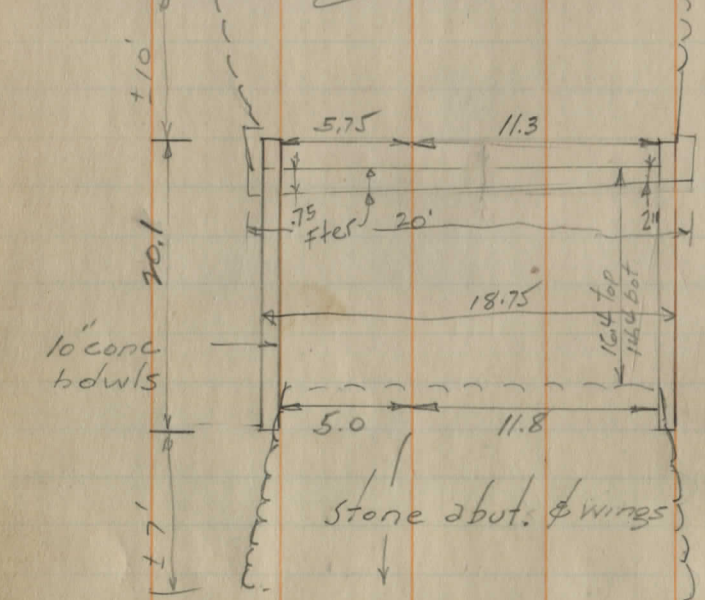 ±10'
5.75 11.3
.75 20' 2"
20.1
18.75
16.4 top
14.4 bot
10" conc
hdwls
5.0 11.8
Stone abut. & wings
±7'